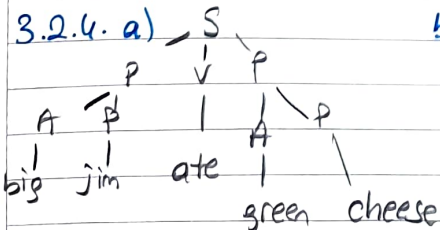 3.2.4. a) S !
P V P
A P A P
big jim ate green cheese